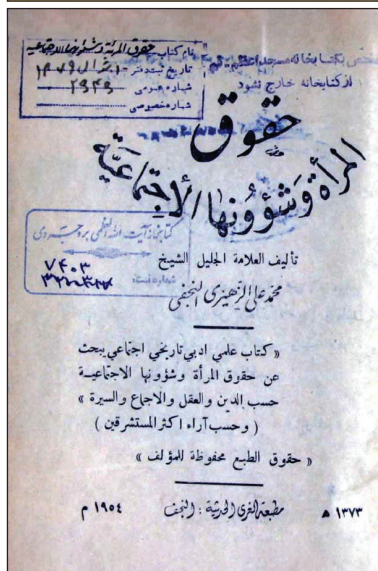 نام کتاب حقوق المرأة وشؤونها الاجتماعية
تاریخ ثبت دفتر
شماره عمومی ۲۹۴۹
شماره خصوصی
مختص بکتابخانه مسجد اعظم قم
از کتابخانه خارج نشود
حقوق
المرأة وَشؤُونها الأجتماعيَّة
كتابخانه آيت الله العظمى بروجردى
شماره ثبت:
۷۴۰۳
تأليف العلامة الجليل الشيخ
محمد علي الزهيري النجفي
« كتاب علمي ادبي تاريخي اجتماعي يبحث
عن حقوق المرأة وشؤونها الاجتماعية
حسب الدين والعقل والاجماع والسيرة »
( وحسب آراء اكثر المستشرقين )
« حقوق الطبع محفوظة للمؤلف »
١٣٧٣ ه مطبعة الغري الحديثة : النجف ١٩٥٤ م